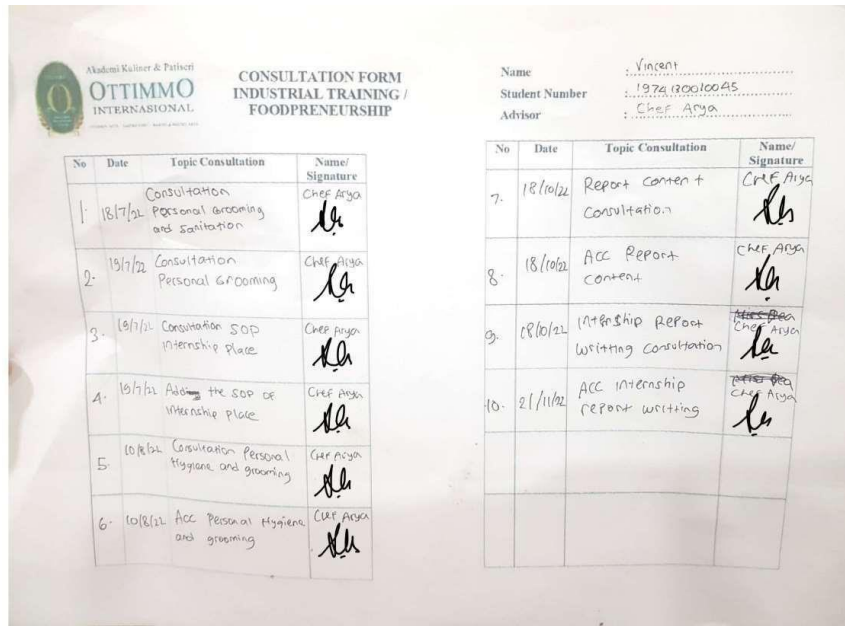 Akademi Kuliner & Patiseri
OTTIMMO
INTERNASIONAL
CONSULTATION FORM
INDUSTRIAL TRAINING /
FOODPRENEURSHIP
Name : Vincent
Student Number : 1974130010045
Advisor : Chef Arya
No Date Topic Consultation Name/
Signature
1. 18/7/22 Consultation
Personal Grooming
and sanitation
Chef Arya
2. 19/7/22 Consultation
Personal Grooming
Chef Arya
3. 19/7/22 Consultation SOP
internship Place
Chef Arya
4. 19/7/22 Adding the SOP OF
internship place
Chef Arya
5. 10/8/22 Consultation Personal
Hygiene and grooming
Chef Arya
6. 10/8/22 Acc Personal Hygiene
and grooming
Chef Arya
No Date Topic Consultation Name/
Signature
7. 18/10/22 Report content
Consultation
Chef Arya
8. 18/10/22 ACC Report
content
Chef Arya
9. 18/10/22 internship Report
writting consultation
Chef Arya
10. 21/11/22 ACC internship
report writting
Chef Arya